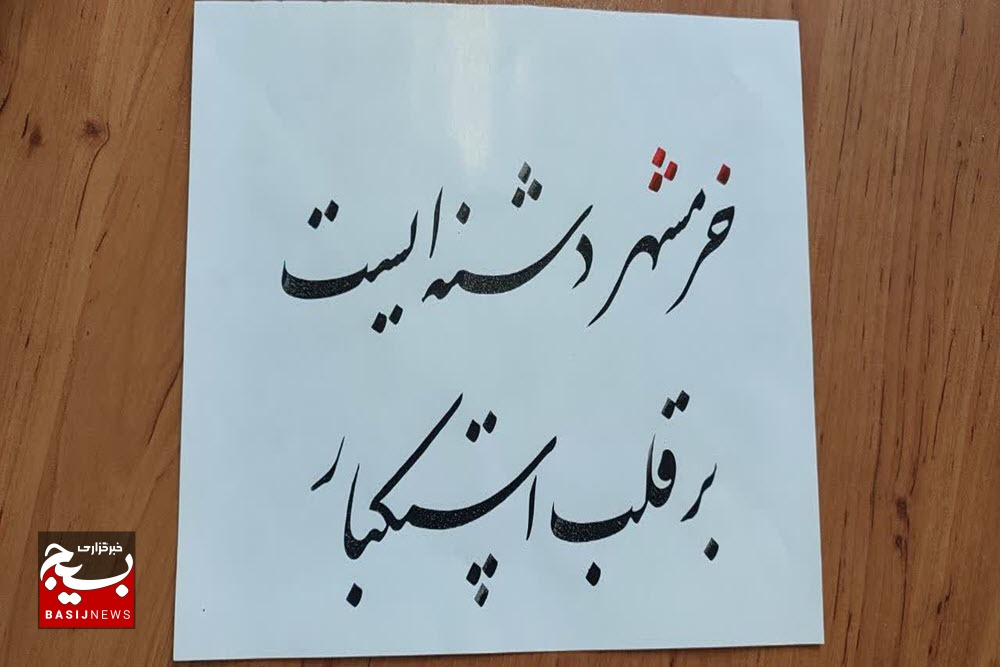 خرمشهر دشنه ایست
بر قلب استکبار
خبرگزاری
بسیج
BASIJNEWS